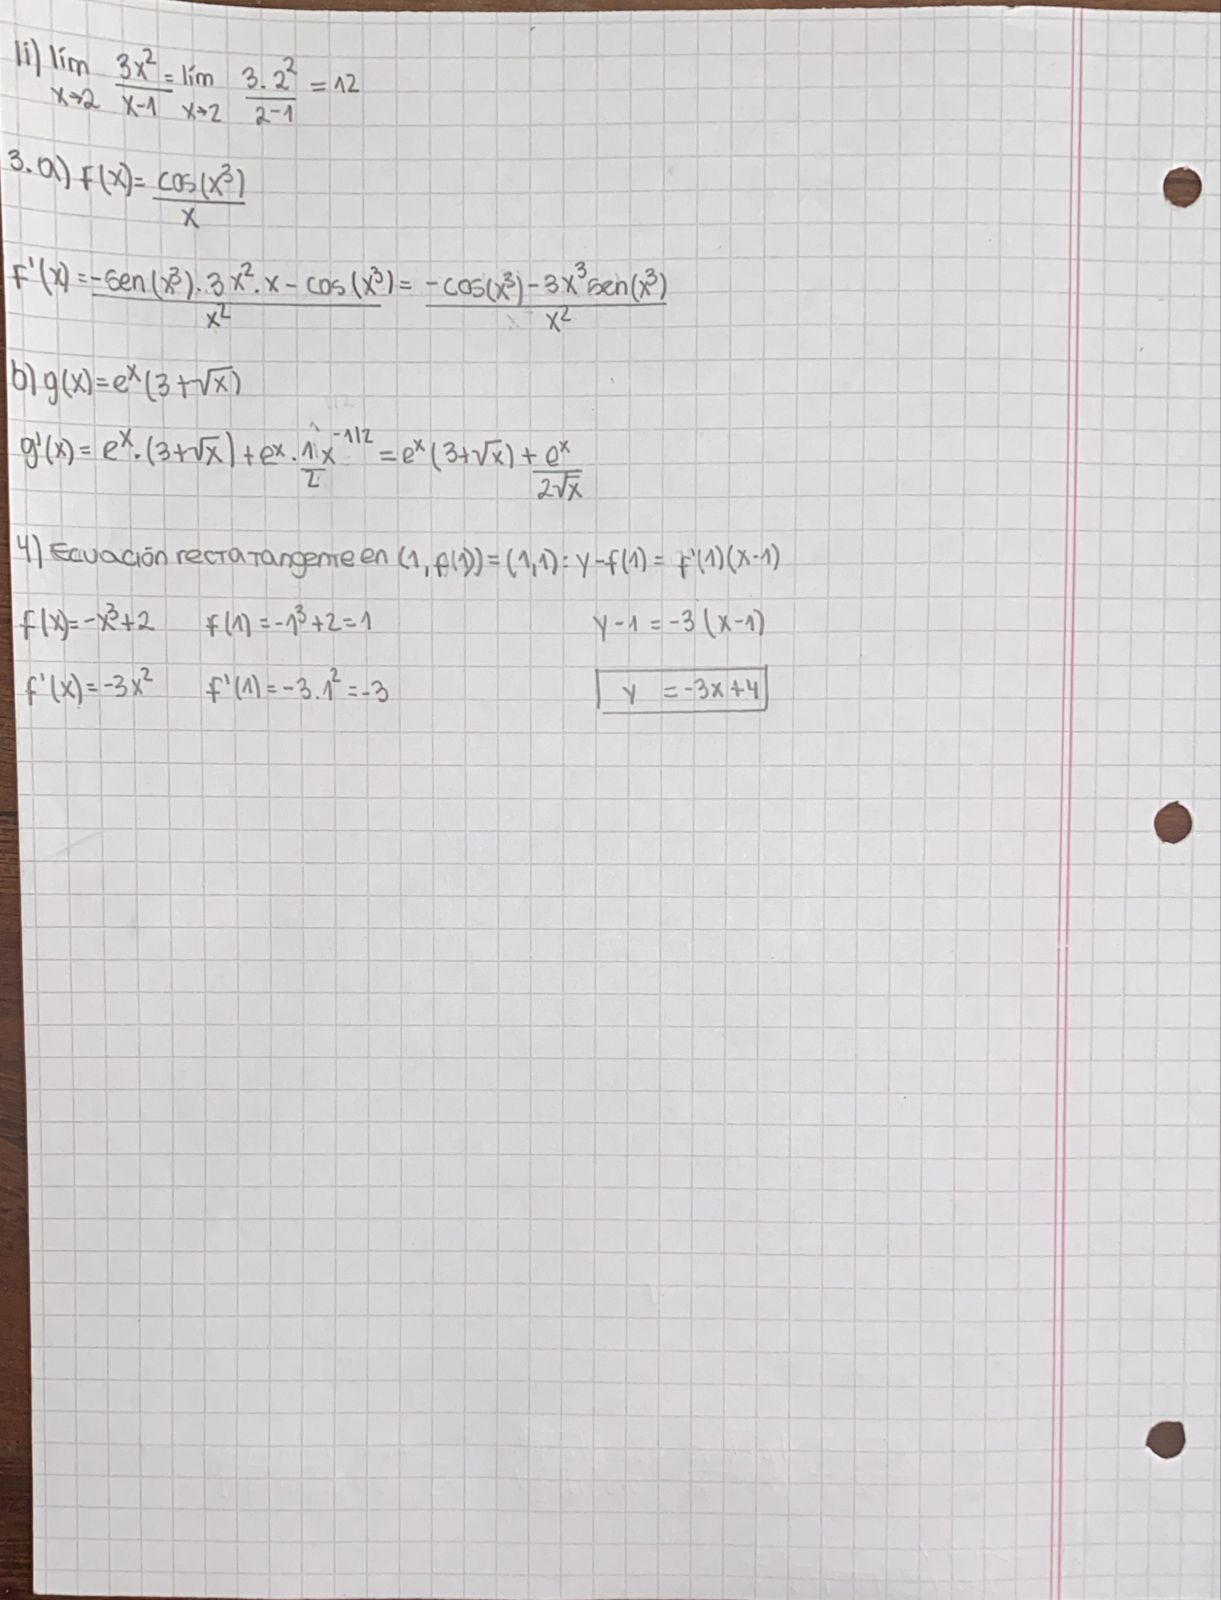 ii) lím x→2 3x²/x-1 = lím x→2 3.2²/2-1 = 12
3.a) f(x)= cos(x³)/x
f'(x) = -sen(x³).3x².x - cos(x³)/x² = -cos(x³)-3x³sen(x³)/x²
b) g(x)=eˣ(3+√x)
g'(x)= eˣ.(3+√x)+eˣ.1/2x^-1/2 = eˣ(3+√x)+eˣ/2√x
4) Ecuación recta tangente en (1,f(1))=(1,1): y-f(1)= f'(1)(x-1)
f(x)=-x³+2 f(1)=-1³+2=1 y-1=-3(x-1)
f'(x)=-3x² f'(1)=-3.1²=-3 y =-3x+4